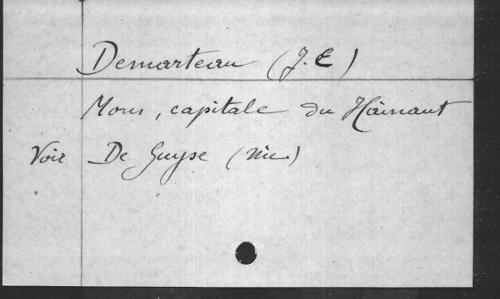 Demarteau (J. E)
Mons, capitale du Hainaut
Voir De Guyse (Nic.)